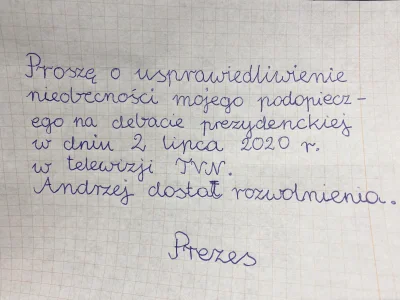 Proszę o usprawiedliwienie
nieobecności mojego podopiecz-
ego na debacie prezydenckiej
w dniu 2 lipca 2020 r.
w telewizji TVN.
Andrzej dostał rozwolnienia.
Prezes